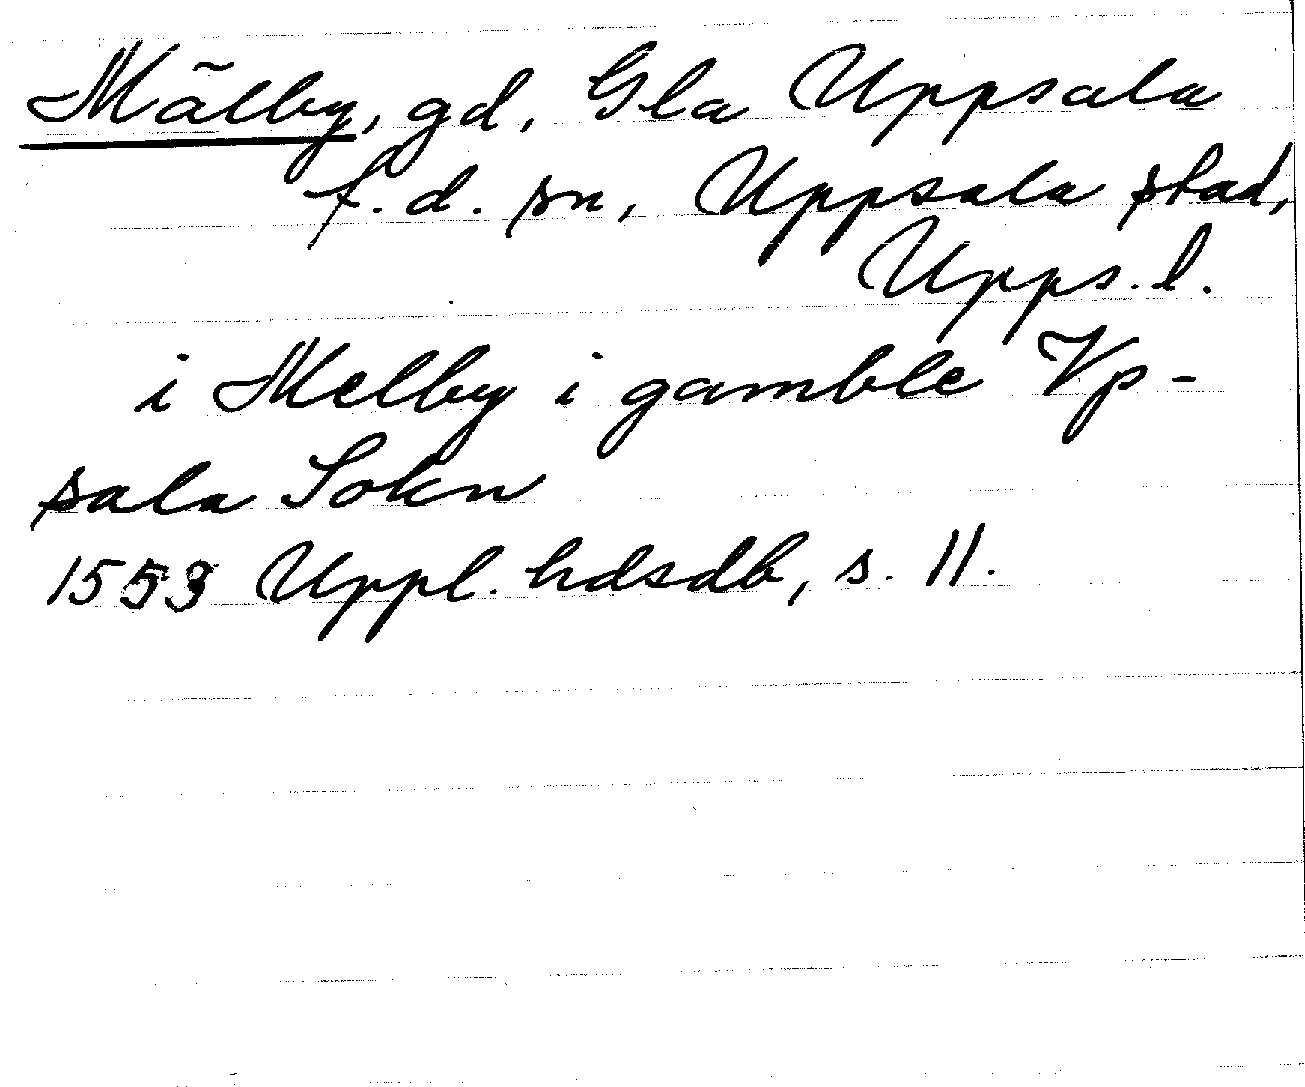 Mälby, gd, Gla Uppsala
f.d. sn, Uppsala stad,
Upps. l.
i Melby i gamble Vp-
sala Sokn
1553 Uppl. hdsdb, s. 11.